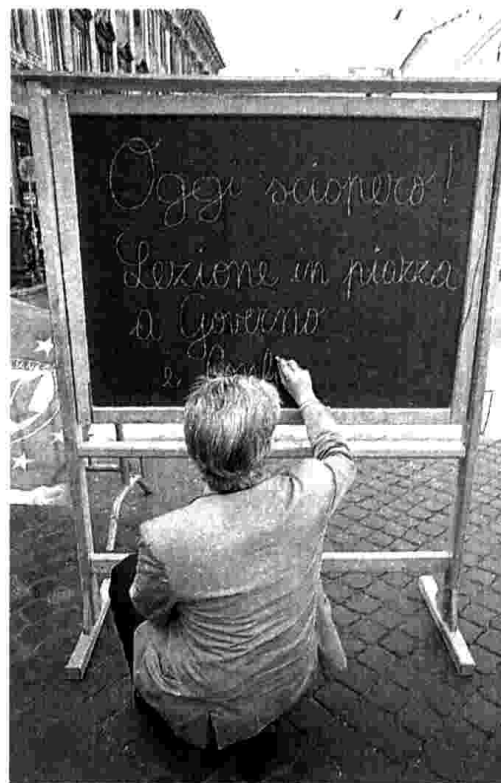 Oggi sciopero!
Lezione in piazza
a Governo
e